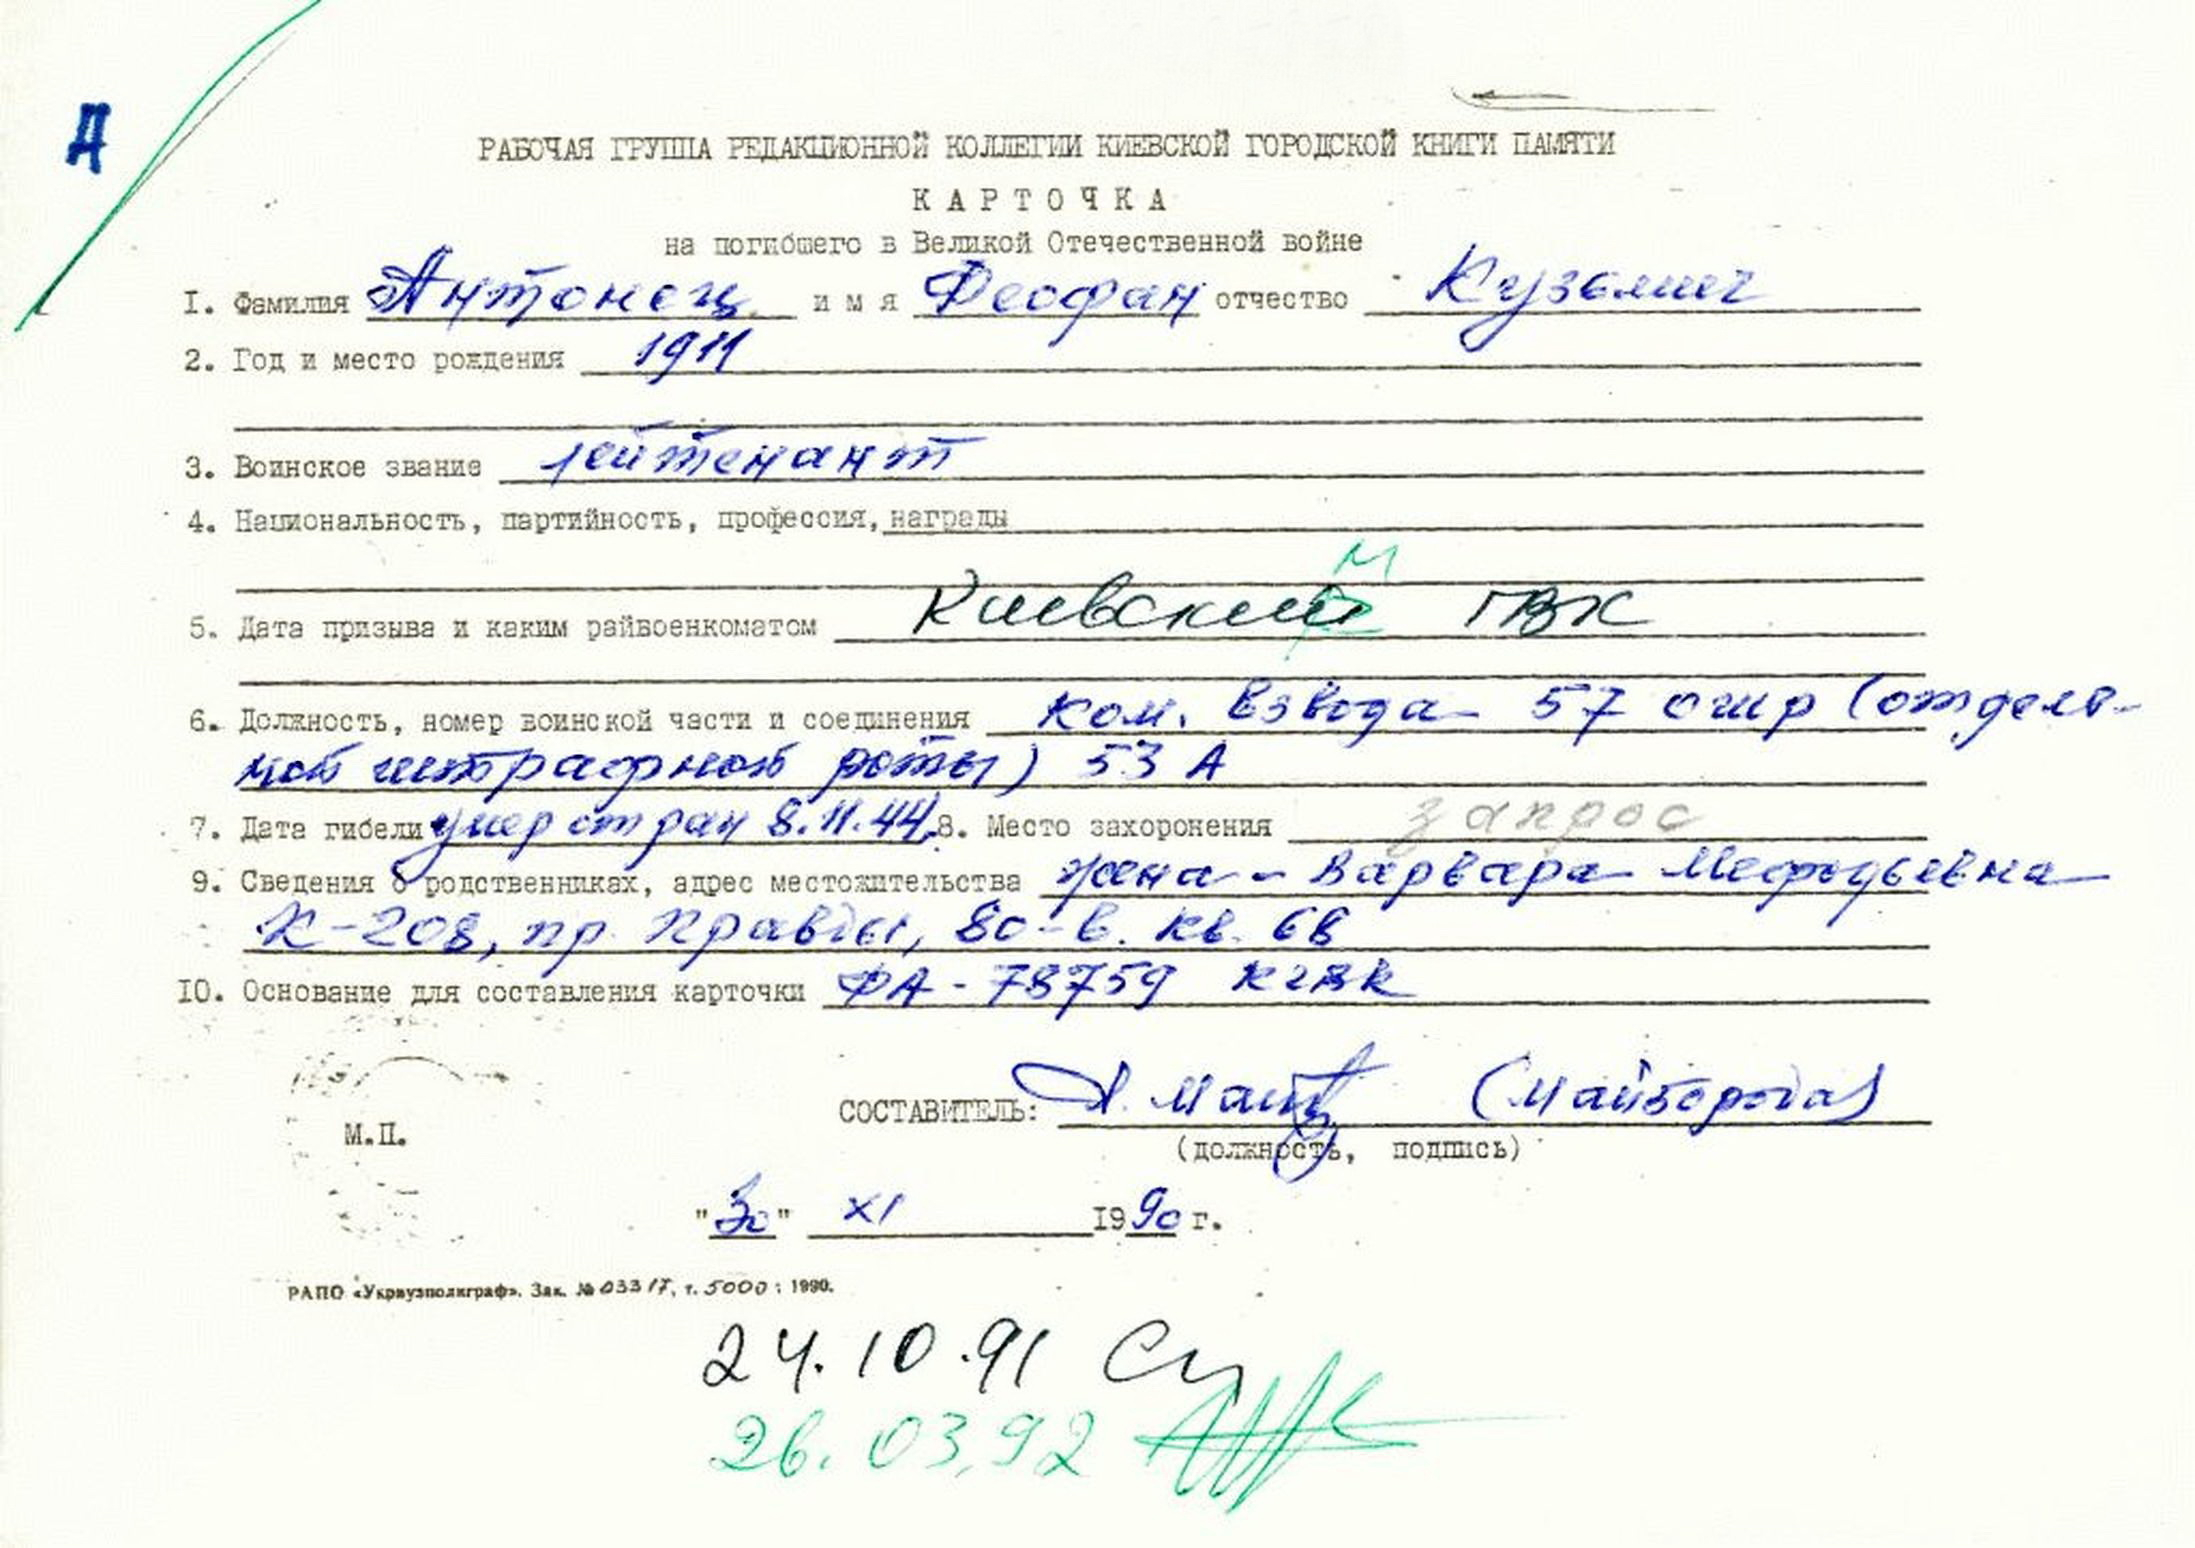 Д
РАБОЧАЯ ГРУППА РЕДАКЦИОННОЙ КОЛЛЕГИИ КИЕВСКОЙ ГОРОДСКОЙ КНИГИ ПАМЯТИ
КАРТОЧКА
на погибшего в Великой Отечественной войне
I. Фамилия Антонец имя Феофан отчество Кузьмич
2. Год и место рождения 1911
3. Воинское звание лейтенант
4. Национальность, партийность, профессия, награды
5. Дата призыва и каким райвоенкоматом Киевский ГВК
6. Должность, номер воинской части и соединения ком. взвода 57 ошр (отдель-
ной штрафной роты) 53 А
7. Дата гибели умер от ран 8.11.44, 8. Место захоронения запрос
9. Сведения о родственниках, адрес местожительства жена - Варвара Мефодьевна
К-208, пр. Правды, 80-в. кв. 68
IO. Основание для составления карточки ФА - 78759 КГВК
СОСТАВИТЕЛЬ: (Майборода)
М.П.
(должность, подпись)
"30" XI 1990 г.
РАПО «Укрвузполиграф». Зак. № 03317, т. 5000 : 1990.
24.10.91
26.03.92